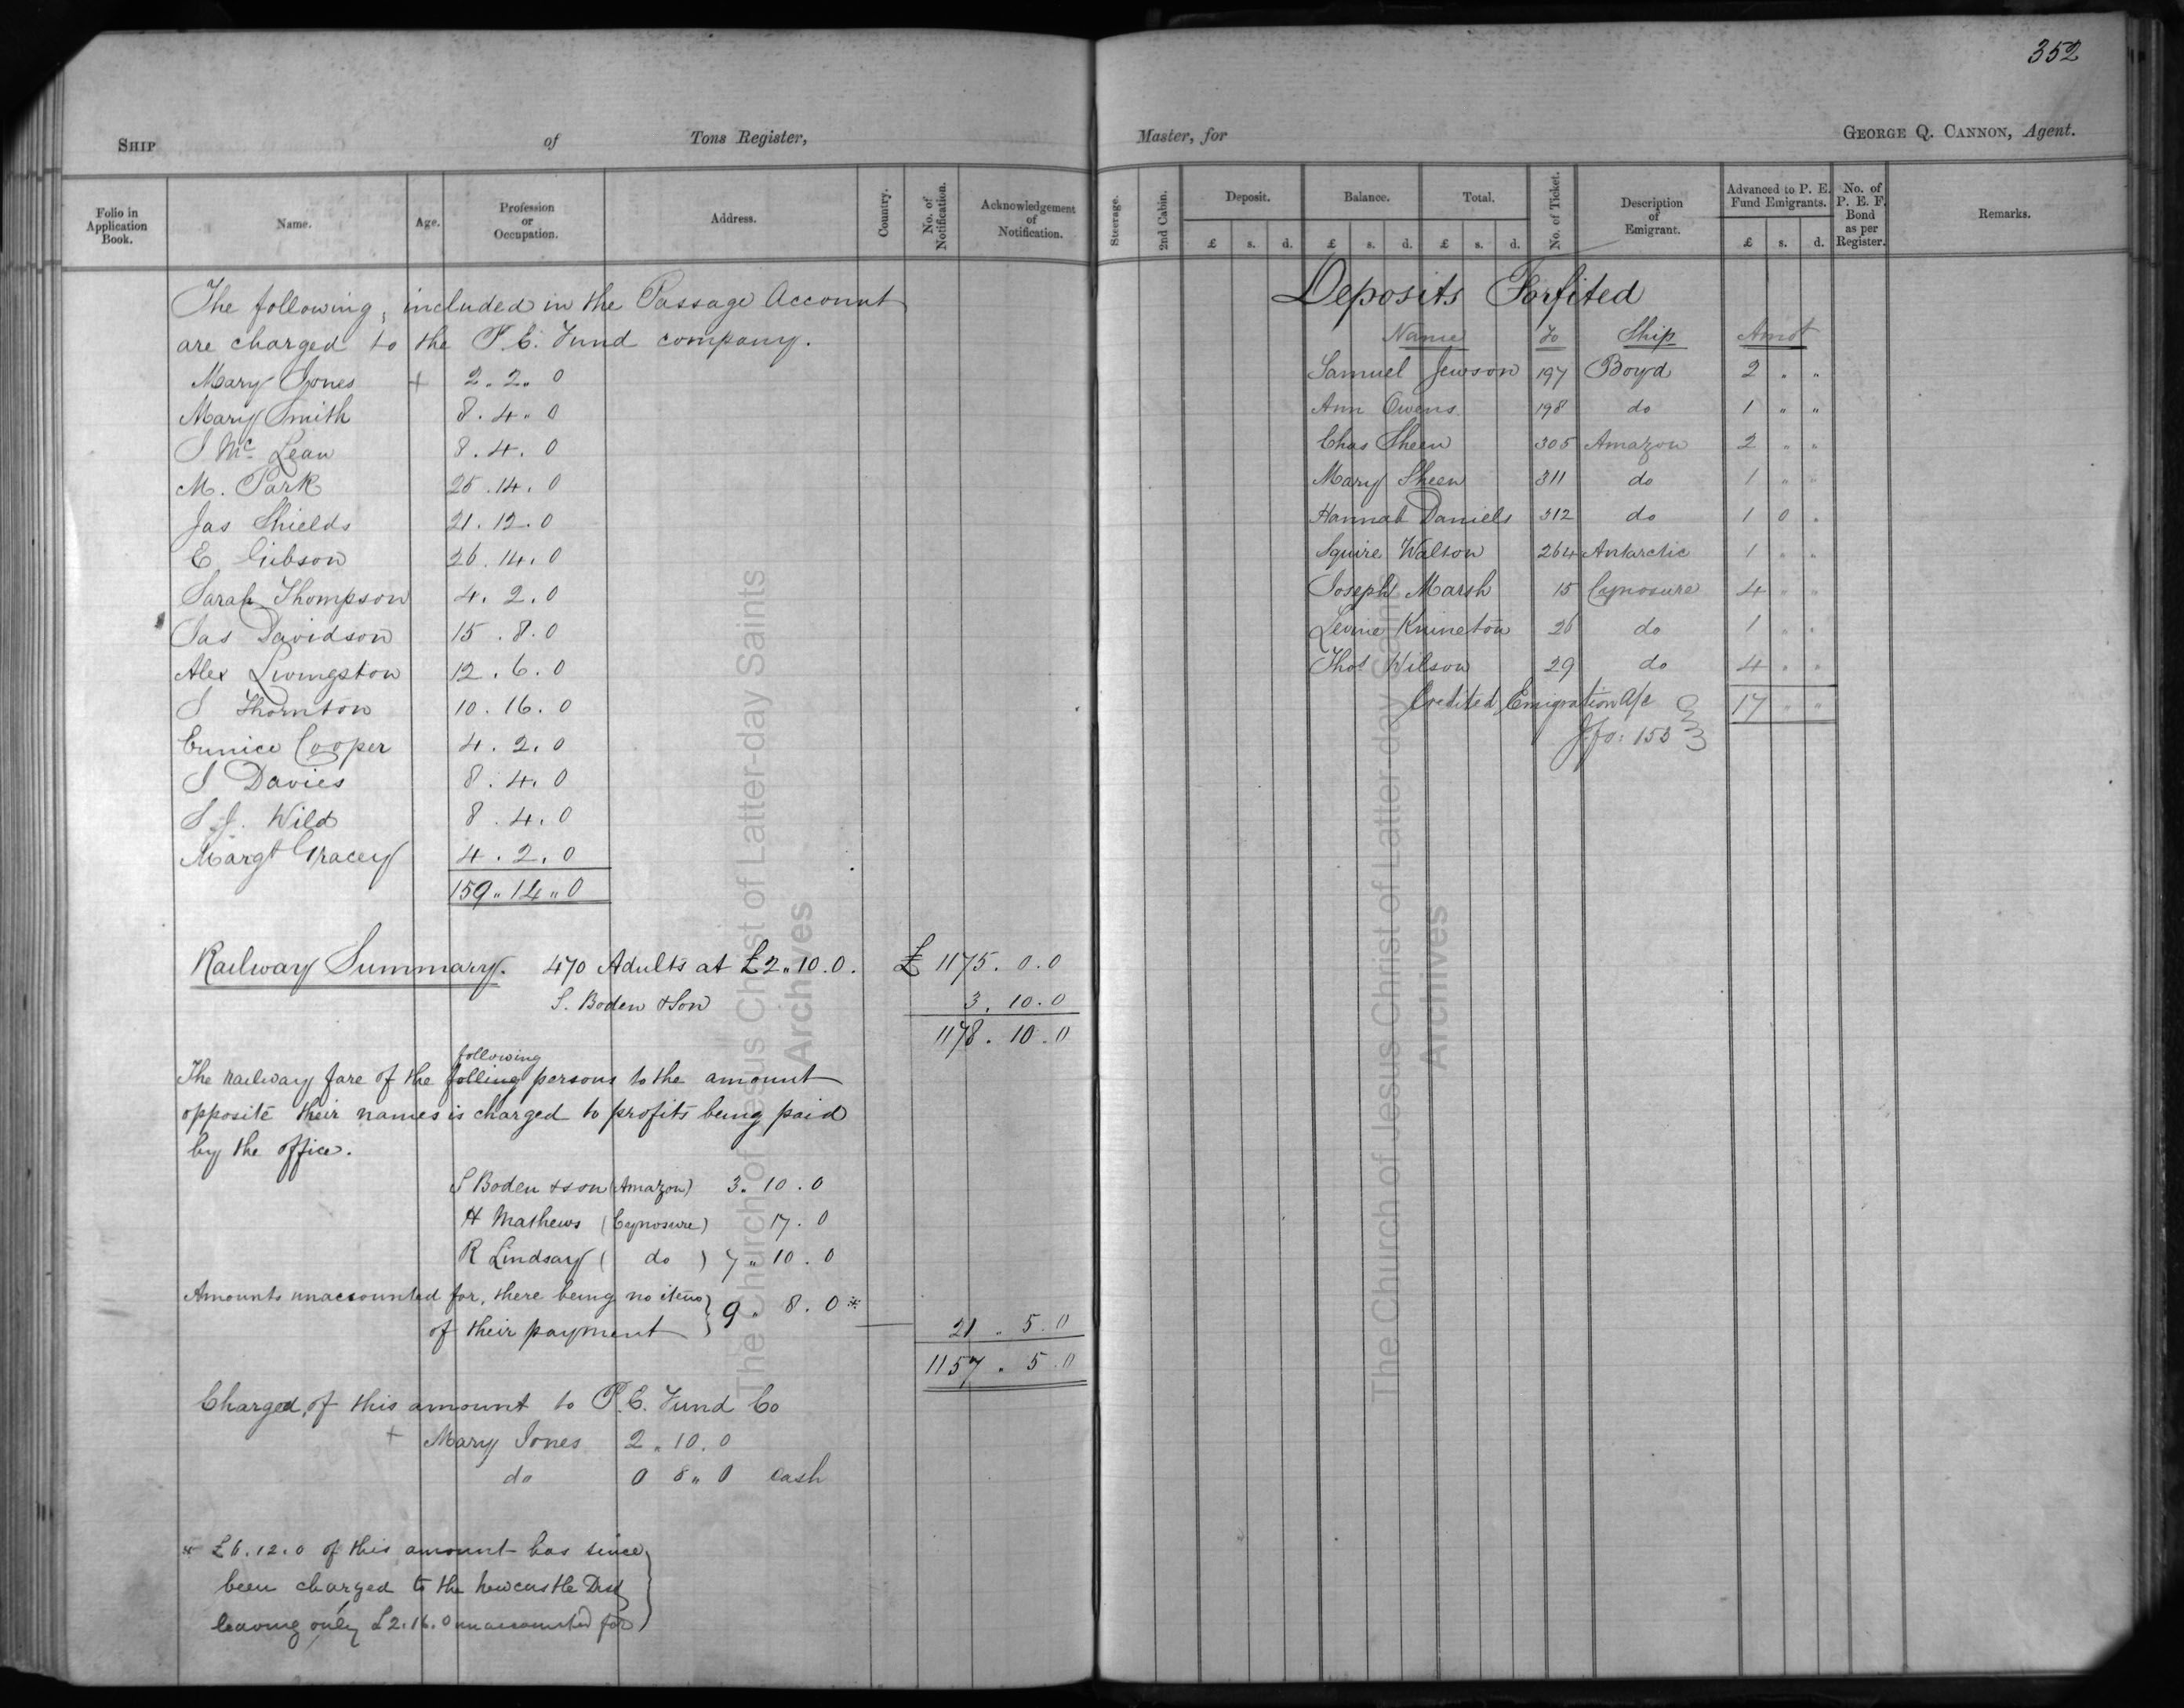 352
SHIP of Tons Register,
Folio in Application Book. Name. Age. Profession or Occupation. Address. Country. No. of Notification. Acknowledgement of Notification.
The following, included in the Passage Account
are charged to the P. E. Fund company.
Mary Jones + 2 . 2 .. 0
Mary Smith 8 . 4 .. 0
J Mc Lean 8 . 4 . 0
M. Park 25 . 14 . 0
Jas Shields 21 . 12 . 0
E. Gibson 26 . 14 . 0
Sarah Thompson 4 . 2 . 0
Jas Davidson 15 . 8 . 0
Alex Livingston 12 . 6 . 0
S Thornton 10 . 16 . 0
Eunice Cooper 4 . 2 . 0
J Davies 8 . 4 . 0
S J. Wild 8 . 4 . 0
Margt Gracey 4 . 2 . 0
159 .. 14 .. 0
Railway Summary. 470 Adults at £2 .. 10 . 0 . £ 1175 . 0 . 0
S. Boden & Son 3 . 10 . 0
1178 . 10 . 0
following
The railway fare of the folling persons to the amount
opposite their names is charged to profits being paid
by the office.
S Boden & son (Amazon) 3 . 10 . 0
H Mathews (Cynosure) 17 . 0
R Lindsay ( do ) 7 .. 10 . 0
Amounts unaccounted for, there being no items
of their payment } 9 .. 8 . 0 * 21 .. 5 . 0
1157 . 5 . 0
Charged, of this amount to P. E. Fund Co
+ Mary Jones 2 .. 10 . 0
do 0 8 .. 0 Cash
* £6 . 12 . 0 of this amount has since
been charged to the Newcastle Dist
leaving only £2 . 16 . 0 unaccounted for
Master, for GEORGE Q. CANNON, Agent.
Steerage. 2nd Cabin. Deposit. £ s. d. Balance. £ s. d. Total. £ s. d. No. of Ticket. Description of Emigrant. Advanced to P. E. Fund Emigrants. £ s. d. No. of P. E. F. Bond as per Register. Remarks.
Deposits Forfited
Name Fo Ship Amot
Samuel Jewson 197 Boyd 2 " "
Ann Owens 198 do 1 " "
Chas Sheen 305 Amazon 2 " "
Mary Sheen 311 do 1 " "
Hannah Daniels 312 do 1 0 "
Squire Walton 264 Antarctic 1 " "
Joseph Marsh 15 Cynosure 4 " "
Levine Knineton 26 do 1 " "
Thos Wilson 29 do 4 " "
Credited Emigration a/c 17 " "
J. fo: 153
The Church of Jesus Christ of Latter-day Saints
Archives
The Church of Jesus Christ of Latter-day Saints
Archives